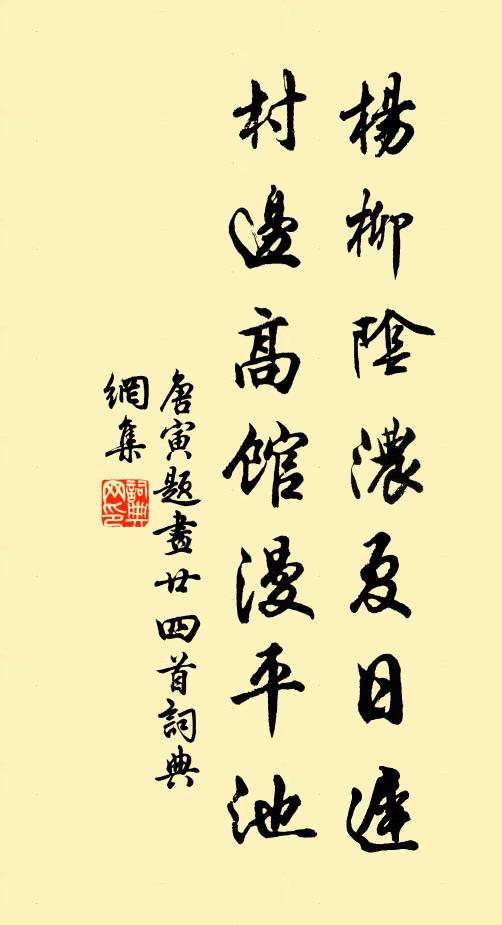 楊柳陰濃夏日遲
村邊高館漫平池
唐寅題畫廿四首詞典
網集
詞典網印